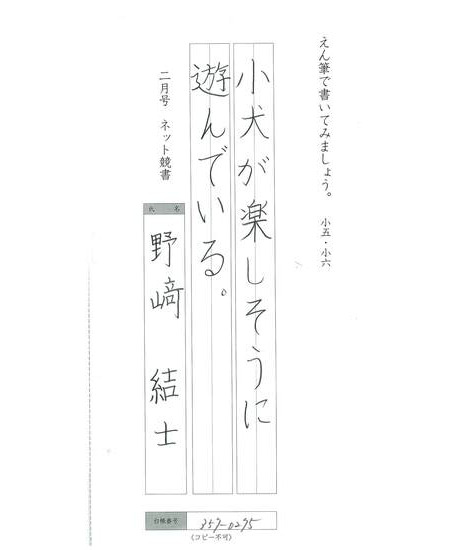 えん筆で書いてみましょう。 小五・小六
小犬が楽しそうに
遊んでいる。
二月号 ネット競書
氏 名
野﨑 結士
台帳番号
359-0295
(コピー不可)